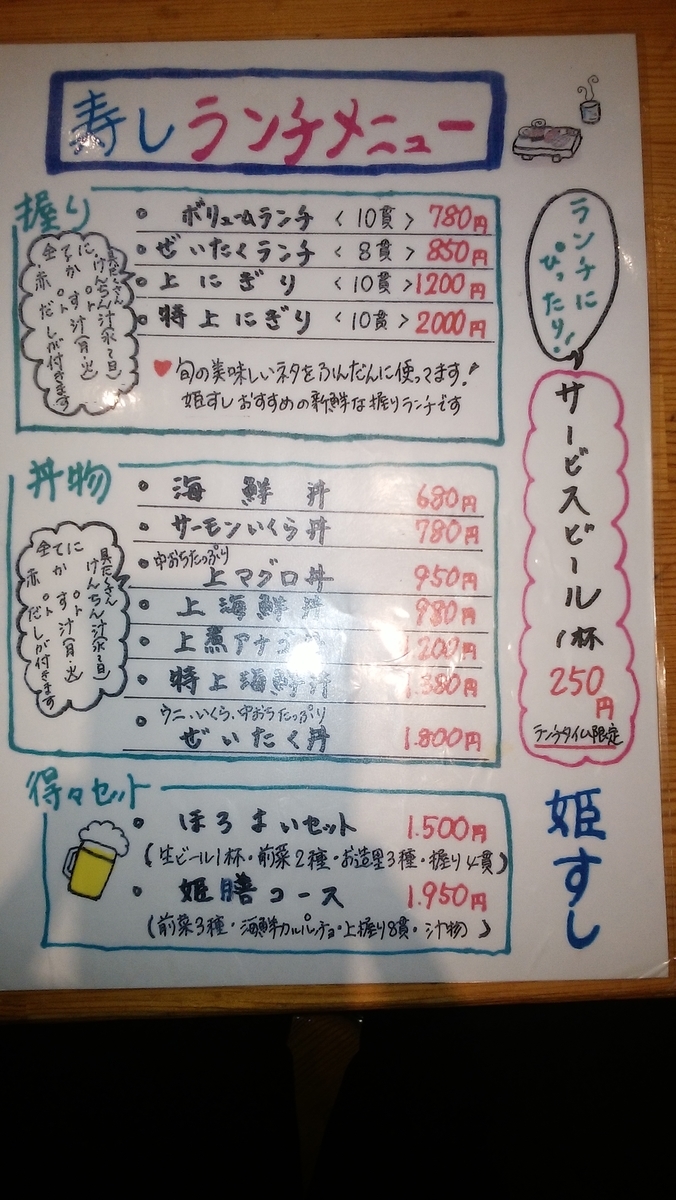 寿しランチメニュー
握り
・ボリュームランチ <10貫> 780円
・ぜいたくランチ <8貫> 850円
・上にぎり <10貫> 1200円
・特上にぎり <10貫> 2000円
♥旬の美味しいネタをふんだんに使ってます!
姫すしおすすめの新鮮な握りランチです
具だくさん
けんちん汁(水〜日)
に
てか す汁(月・火)
全
赤だしが付きます
ランチに
ぴったり!
サービスビール
1杯
250円
ランチタイム限定
丼物
・海鮮丼 680円
・サーモンいくら丼 780円
・中おちたっぷり
上マグロ丼 950円
・上海鮮丼 980円
・上煮アナゴ丼 1200円
・特上海鮮丼 1.380円
・ウニ、いくら、中おちたっぷり
ぜいたく丼 1.800円
具だくさん
けんちん汁(水〜日)
に
てか す汁(月・火)
全
赤だしが付きます
得々セット
・ほろよいセット 1.500円
(生ビール1杯・前菜2種・お造里3種・握り4貫)
・姫膳コース 1.950円
(前菜3種・海鮮カルパッチョ・上握り8貫・汁物)
姫すし